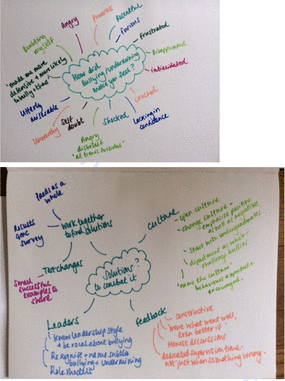 Angry
Powerless
Resentful
Furious
Frustrated
Disappointed
intimidated
Crushed
Lacking in
confidence
Shocked
Angry
disbelief
Self
doubt
Unworthy
Utterly
miserable
"made me more
defensive + more likely
Building
myself
How did
bullying/undermining
make you feel?
Work together
to find solutions
Results
GMC
survey
Test changes
Small
successful
examples to
share
Solutions
to combat it
?
Culture
open culture
change culture -
emphasise positive
start with undergraduates
department as whole -
challenge bullies
name the culture +
behaviours +
Feedback
constructive
"more what went well,
even better if"
Honest discussions
dedicated supervision time -
not just when something wrong.
Leaders
Know leadership style
+ be vocal about bullying
Recognise + name subtle
bullying + undermining
Role models